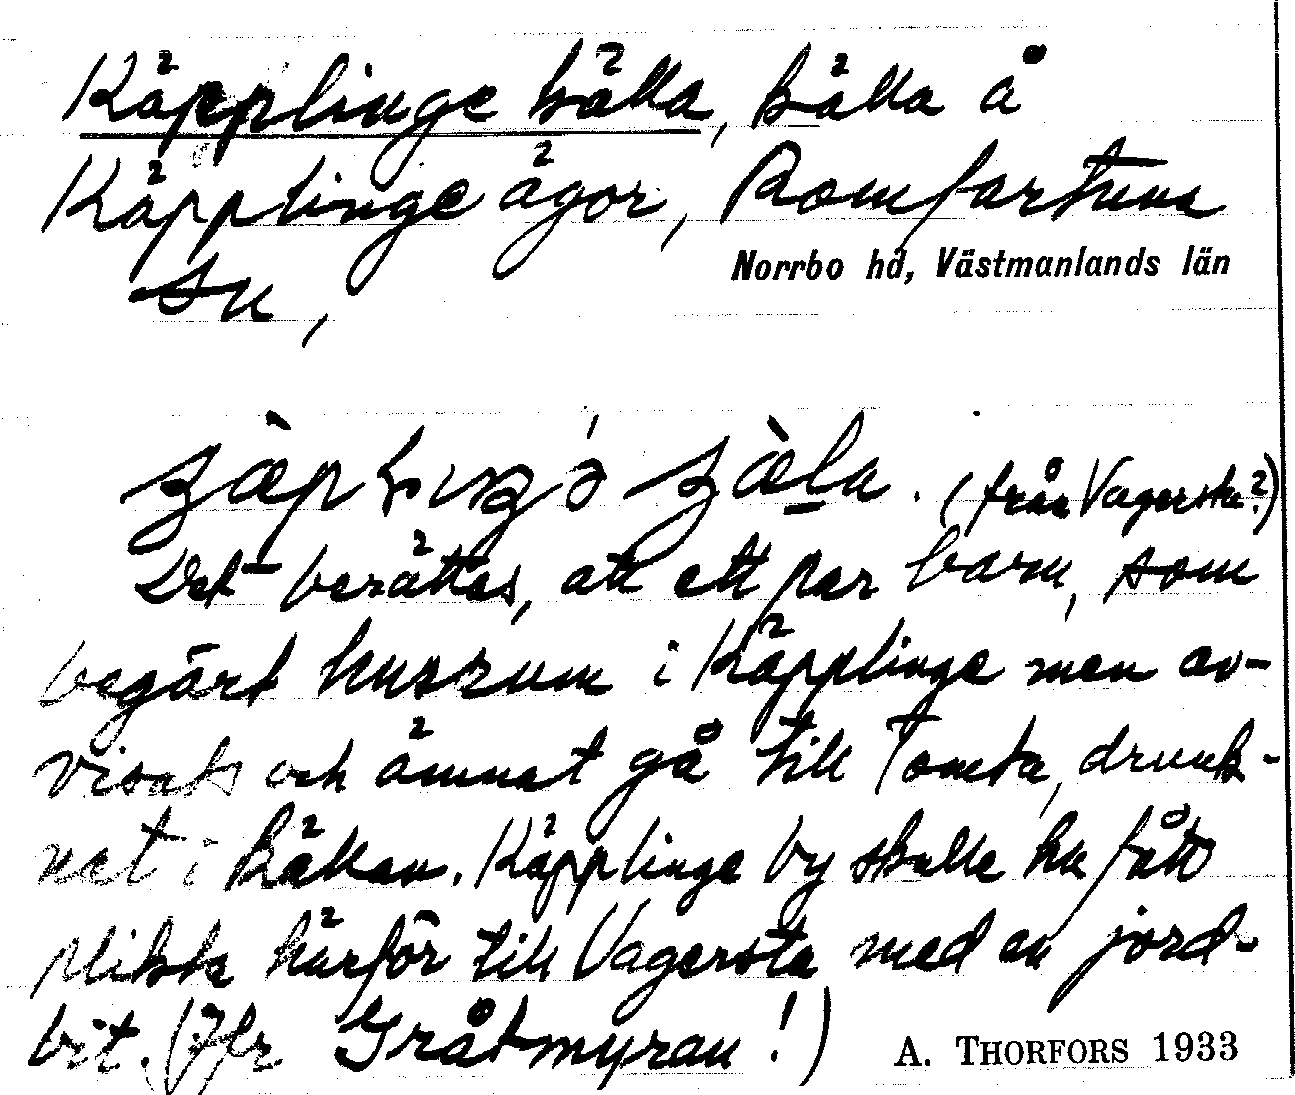 Käpplinge källa, källa å
Käpplinge ägor, Romfartuna
sn,
Norrbo hd, Västmanlands län
(från Vagersta?)
Det berättas, att ett par barn, som
begärt husrum i Käpplinge men av-
visats och ämnat gå till Tomta, drunk-
nat i källan. Käpplinge by skulle ha fått
plikta härför till Vagersta med en jord-
bit. (Jfr Gråtmyran!)
A. THORFORS 1933